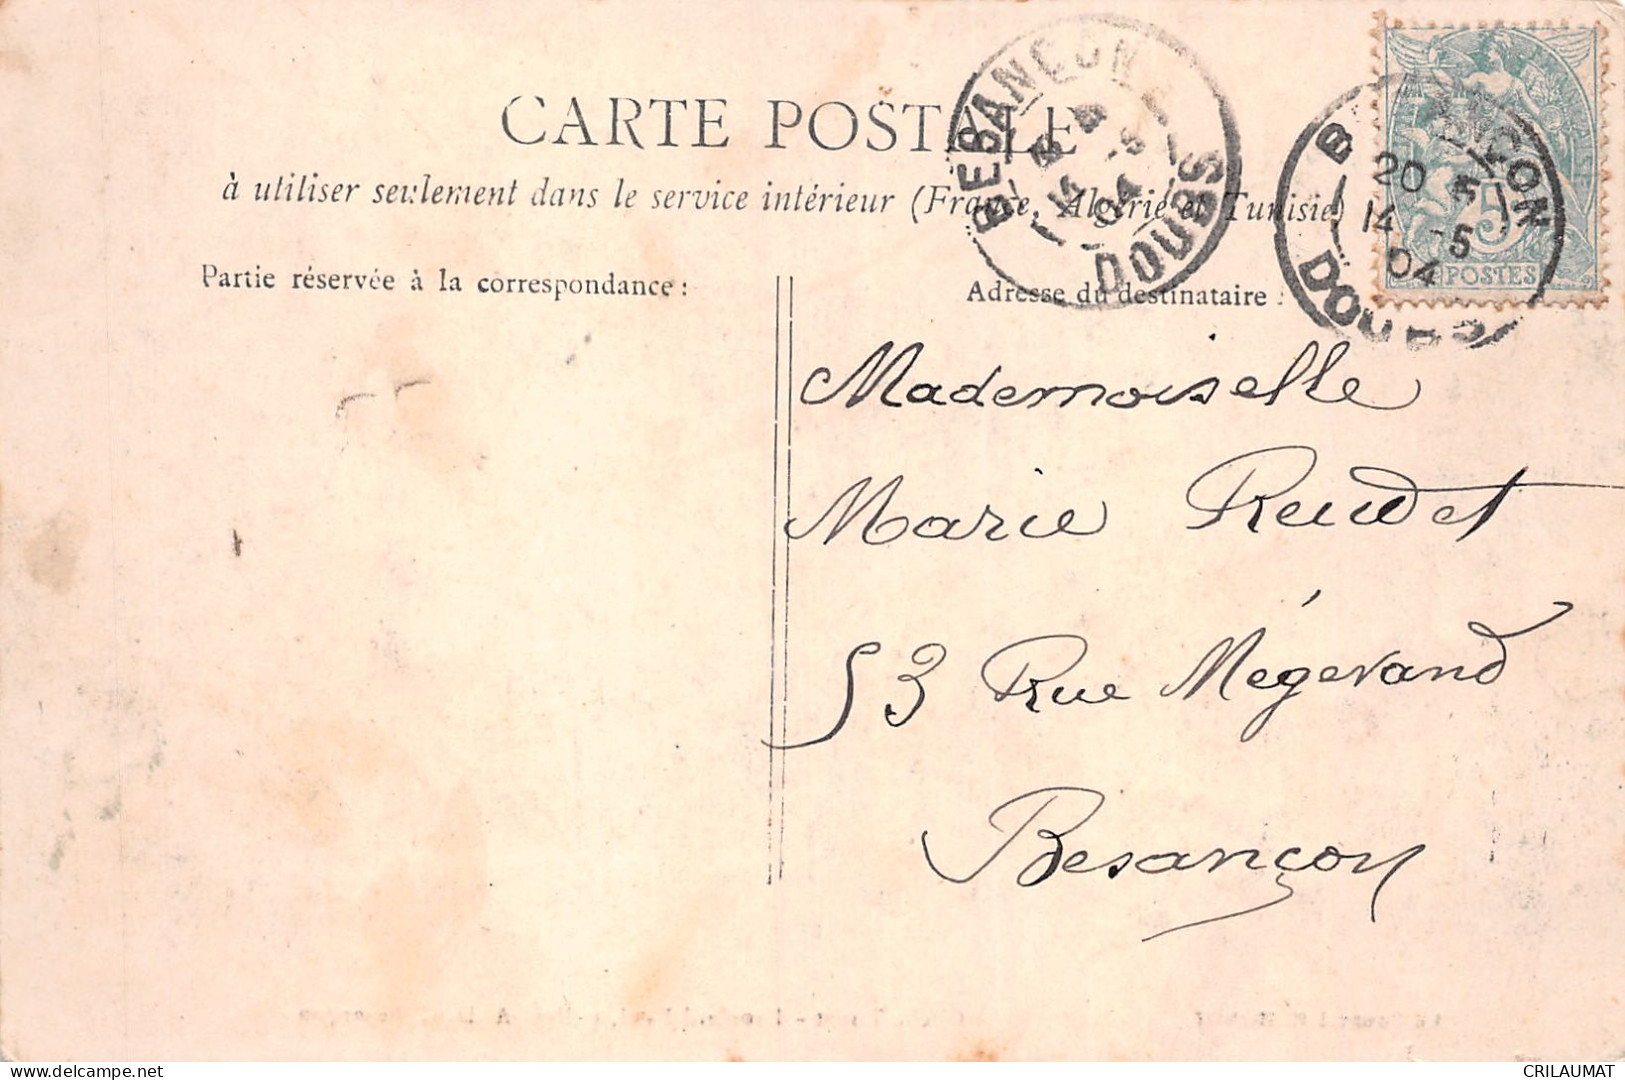 CARTE POSTALE
à utiliser seulement dans le service intérieur (France, Algérie et Tunisie)
Partie réservée à la correspondance :
Adresse du destinataire :
BESANÇON
DOUBS
BESANÇON
20
14 -5
04
DOUBS
5
POSTES
Mademoiselle
Marie
53 Rue Mégevand
Besançon
www.delcampe.net
CRILAUMAT